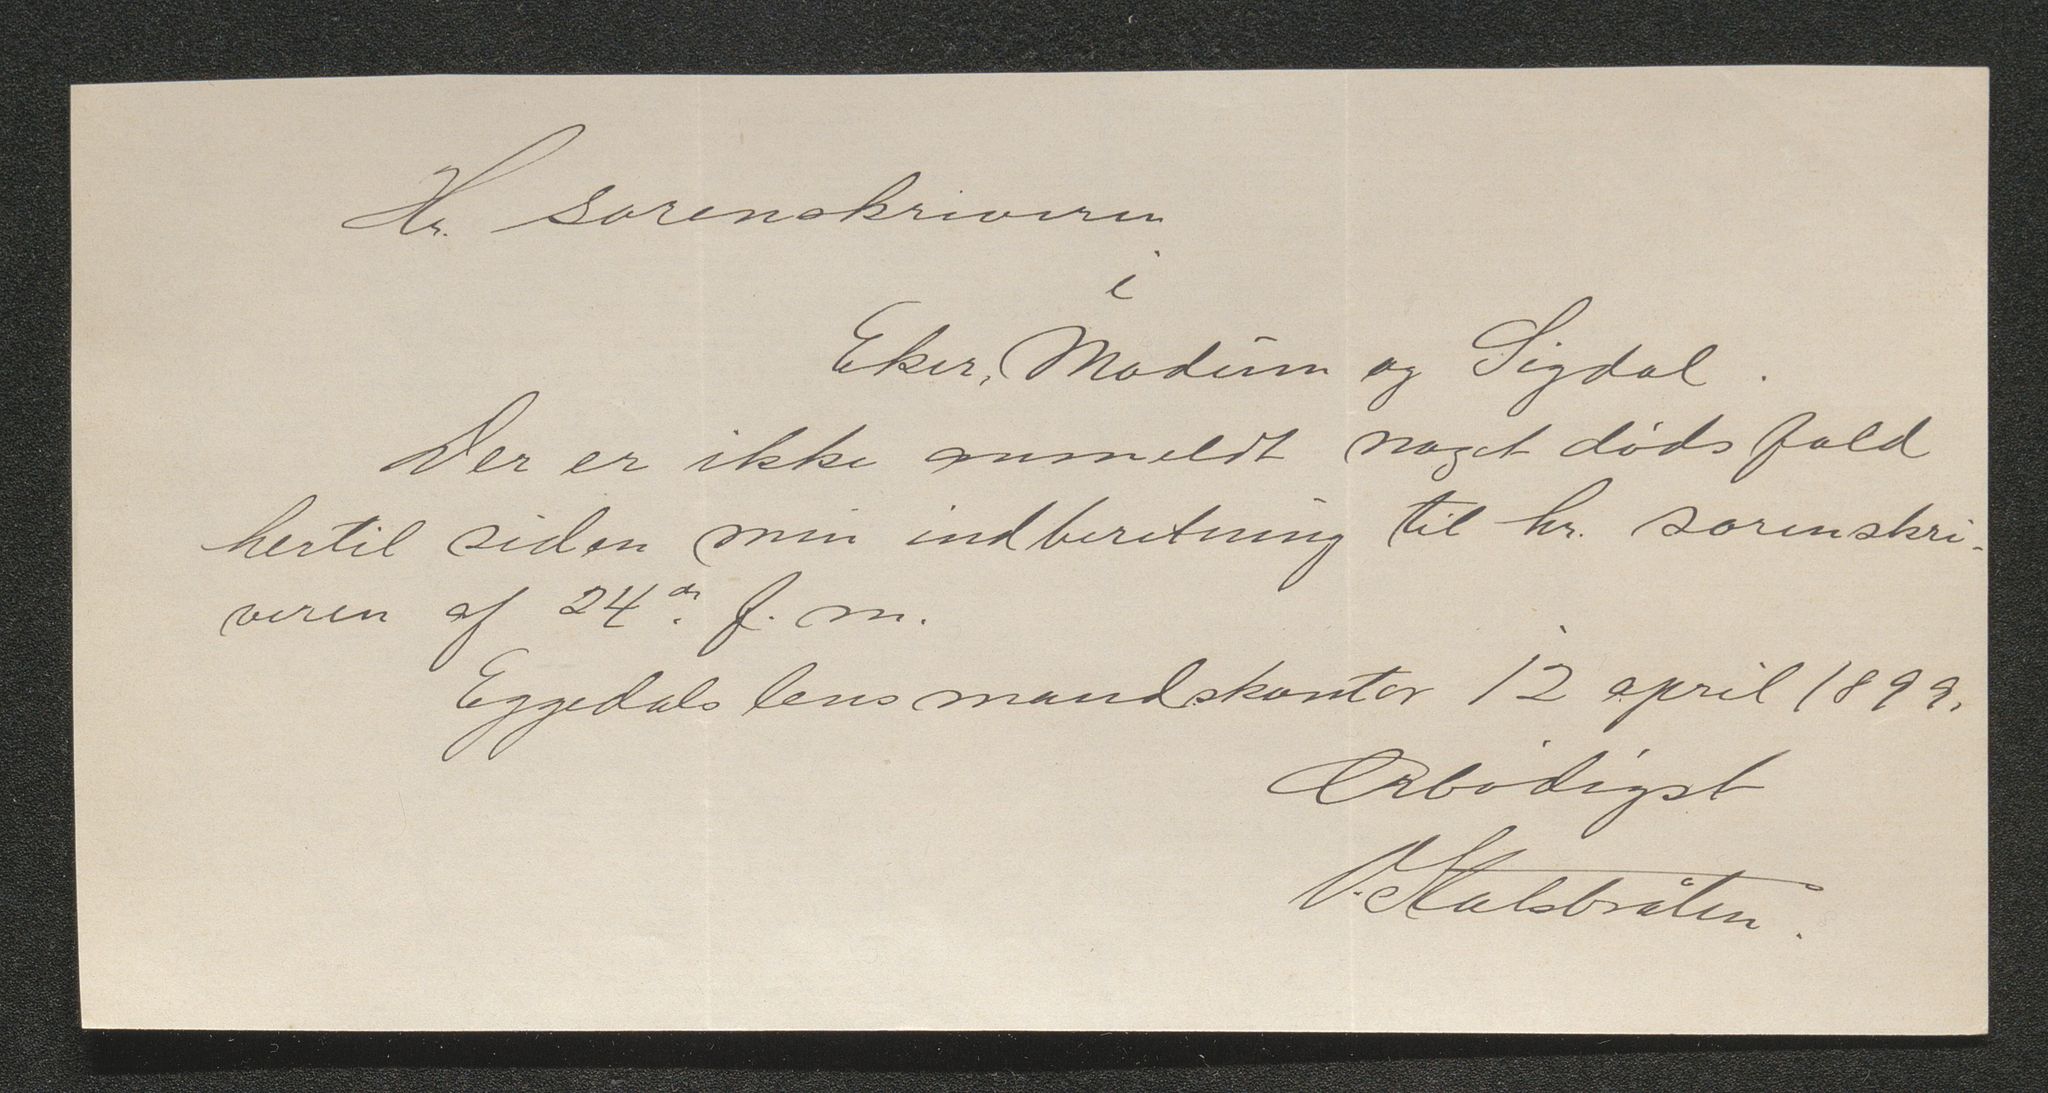 Hr. sorenskriveren
i
Eker, Modum og Sigdal.
Der er ikke anmeldt noget dødsfald
hertil siden min indberetning til hr. sorenskri-
veren af 24de. f. m.
Eggedals lensmandskontor 12 april 1899.
Ærbødigst